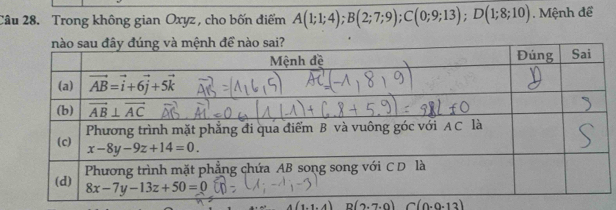 Câu 28. Trong không gian Oxyz, cho bốn điểm A(1;1;4);B(2;7;9);C(0;9;13); D(1;8;10). Mệnh đề
nào sau đây đúng và mệnh đề nào sai?
Mệnh đề Đúng Sai
(a) AB⃗=i⃗+6j⃗+5k⃗ AB⃗=(1,6,5) AC⃗=(-1,8,9) D
(b) AB⃗ ⊥ AC⃗ AB⃗.AC⃗=0 (1.(-1)+6.8+5.9)= ≠0 S
(c) Phương trình mặt phẳng đi qua điểm B và vuông góc với AC là S
x-8y-9z+14=0.
(d) Phương trình mặt phẳng chứa AB song song với CD là
8x-7y-13z+50=0 CD⃗=(1,-1,-3)
A(1;1;4) B(2;7;9) C(0;9;13)